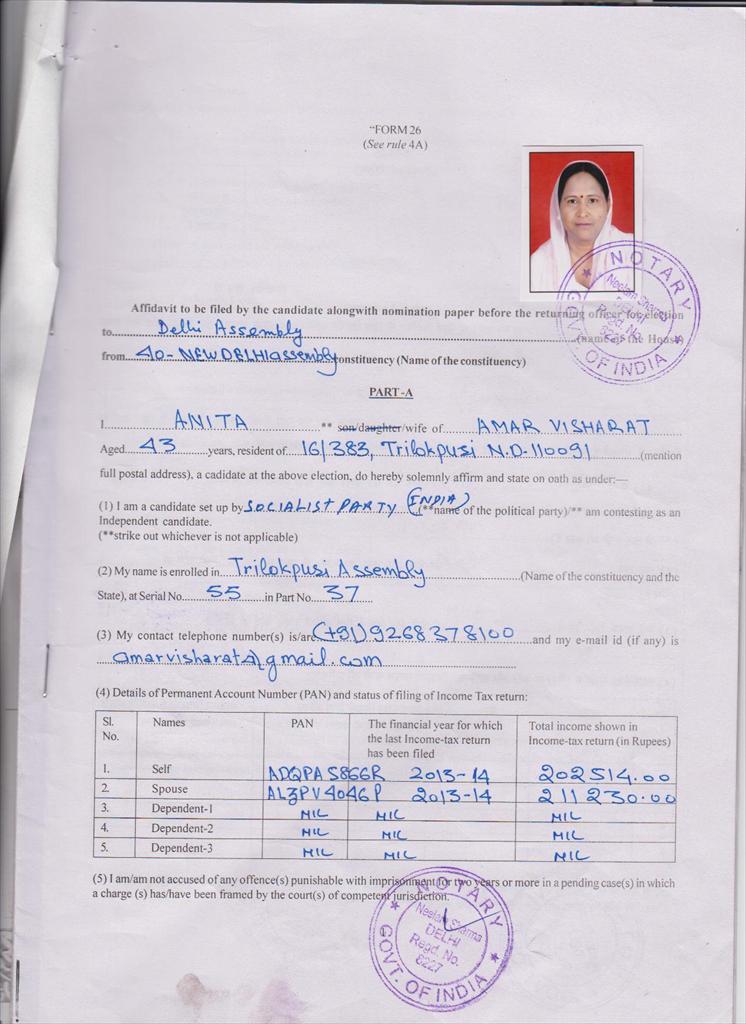 "FORM 26
(See rule 4A)
NOTARY
Neelam Sharma
DELHI
Regd. No.
8227
GOVT. OF INDIA
Affidavit to be filed by the candidate alongwith nomination paper before the returning officer for election
to....Delhi Assembly....(name of the House)
from....40- NEW DELHI assembly constituency (Name of the constituency)
PART-A
I....ANITA....** son/daughter/wife of....AMAR VISHARAT....
Aged....43....years, resident of....16/383, Trilokpusi N.D-110091....(mention
full postal address), a cadidate at the above election, do hereby solemnly affirm and state on oath as under:—
(1) I am a candidate set up by SOCIALIST PARTY (INDIA) (**name of the political party)/** am contesting as an
Independent candidate.
(**strike out whichever is not applicable)
(2) My name is enrolled in....Trilokpusi Assembly....(Name of the constituency and the
State), at Serial No....55....in Part No....37....
(3) My contact telephone number(s) is/are (+91)9268378100....and my e-mail id (if any) is
....amarvisharat@gmail.com....
(4) Details of Permanent Account Number (PAN) and status of filing of Income Tax return:
Sl. No. Names PAN The financial year for which the last Income-tax return has been filed Total income shown in Income-tax return (in Rupees)
1. Self ADQPA5866R 2013-14 202514.00
2. Spouse ALZPV4046P 2013-14 211230.00
3. Dependent-1 NIL NIL NIL
4. Dependent-2 NIL NIL NIL
5. Dependent-3 NIL NIL NIL
(5) I am/am not accused of any offence(s) punishable with imprisonment for two years or more in a pending case(s) in which
a charge (s) has/have been framed by the court(s) of competent jurisdiction.
NOTARY
Neelam Sharma
DELHI
Regd. No.
8227
GOVT. OF INDIA